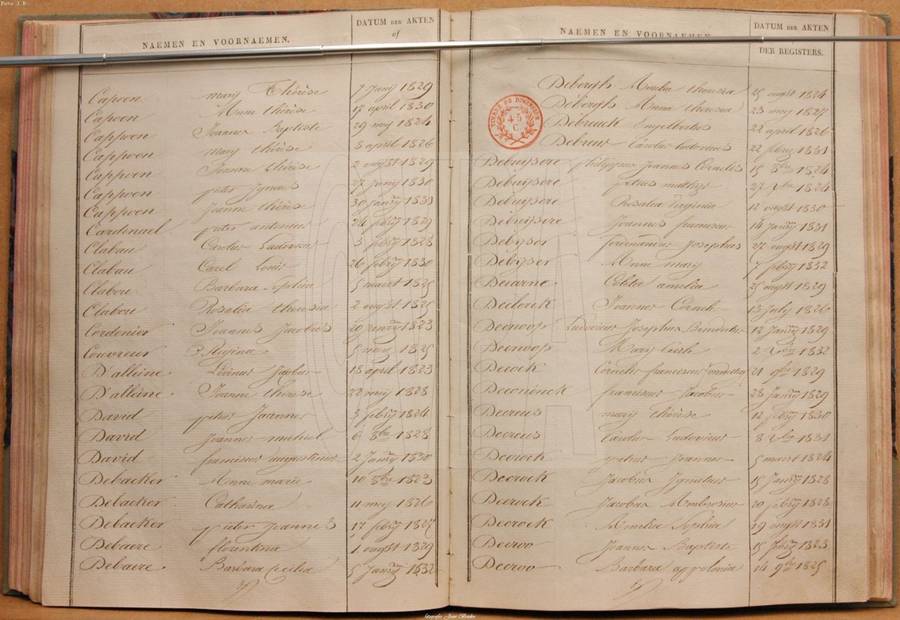 NAEMEN EN VOORNAEMEN.
DATUM DER AKTEN
of
Capoen mary Thérèse 7 Juny 1829
Capoen Anna thérèse 17 april 1830
Cappoen Joannes Baptiste 29 mey 1824
Cappoen mary thérèse 3 april 1826
Cappoen Joanna thérèse 2 augst 1829
Cappoen pieter Ignaes 27 Juny 1830
Cappoen Joanna thérèse 30 Janry 1831
Cardinael pieter antonius 24 febry 1829
Clabau Carolus Ludovicus 3 febry 1828
Clabau Carel Louis 26 febry 1830
Clabou Barbara Sophia 5 maart 1825
Clabou Rosalia theresia 2 augst 1825
Cordenier Joannes Jacobus 1823
Couvreur Regina 5 mey 1825
D'alleine Livinus Jacobus 18 april 1823
D'alleine Joanna therese 22 mey 1828
David pieter Joannes 3 febry 1824
David Joannes michiel 6 8bre 1828
David franciscus augustinus 2 Janry 1830
Debacker Anna marie 10 8bre 1823
Debacker Catharina 11 mey 1826
Debacker pieter joannes 17 febry 1827
Debaere florentina 1 augst 1829
Debaere Barbara Cecilia 5 Janry 1832
NAEMEN EN VOORNAEMEN
DATUM DER AKTEN
DER REGISTERS.
Debergh Amelia theresia 25 augst 1824
Debergh Anna theresia 23 mey 1827
Debrauck Engelbertus 22 april 1826
Debruw Carolus ludovicus 22 febry 1831
Debuysere philippus joannes Cornelis 15 8bre 1824
Debuysere petrus mathys 27 1824
Debuysere Rosalia Virginia 12 augst 1830
Debuysere Joannes franciscus 14 Janry 1831
Debyser ferdinandus Josephus 27 augst 1829
Debyser Anna mary 7 febry 1832
Decarne Coleta amelia 25 augst 1829
Declerck Joannes Cornelis 13 July 1826
Decroop Ludovicus Josephus Benedictus 12 Janry 1829
Decroop Mary Cecile 2 1832
Decock Cornelis franciscus 21 9bre 1829
Deconinck franciscus Jacobus 28 Janry 1829
Decreus mary thérèse 12 febry 1830
Decreus Carolus Ludovicus 8 1831
Decrock petrus Joannes 5 maart 1824
Decrock Jacobus Ignatius 15 Janry 1828
Decrock Jacobus Ambrosius 20 febry 1828
Decrock Amelia Sophia 29 augst 1831
Decroo Joannes Baptiste 15 febry 1823
Decroo Barbara appolonia 14 9bre 1825
45
C.